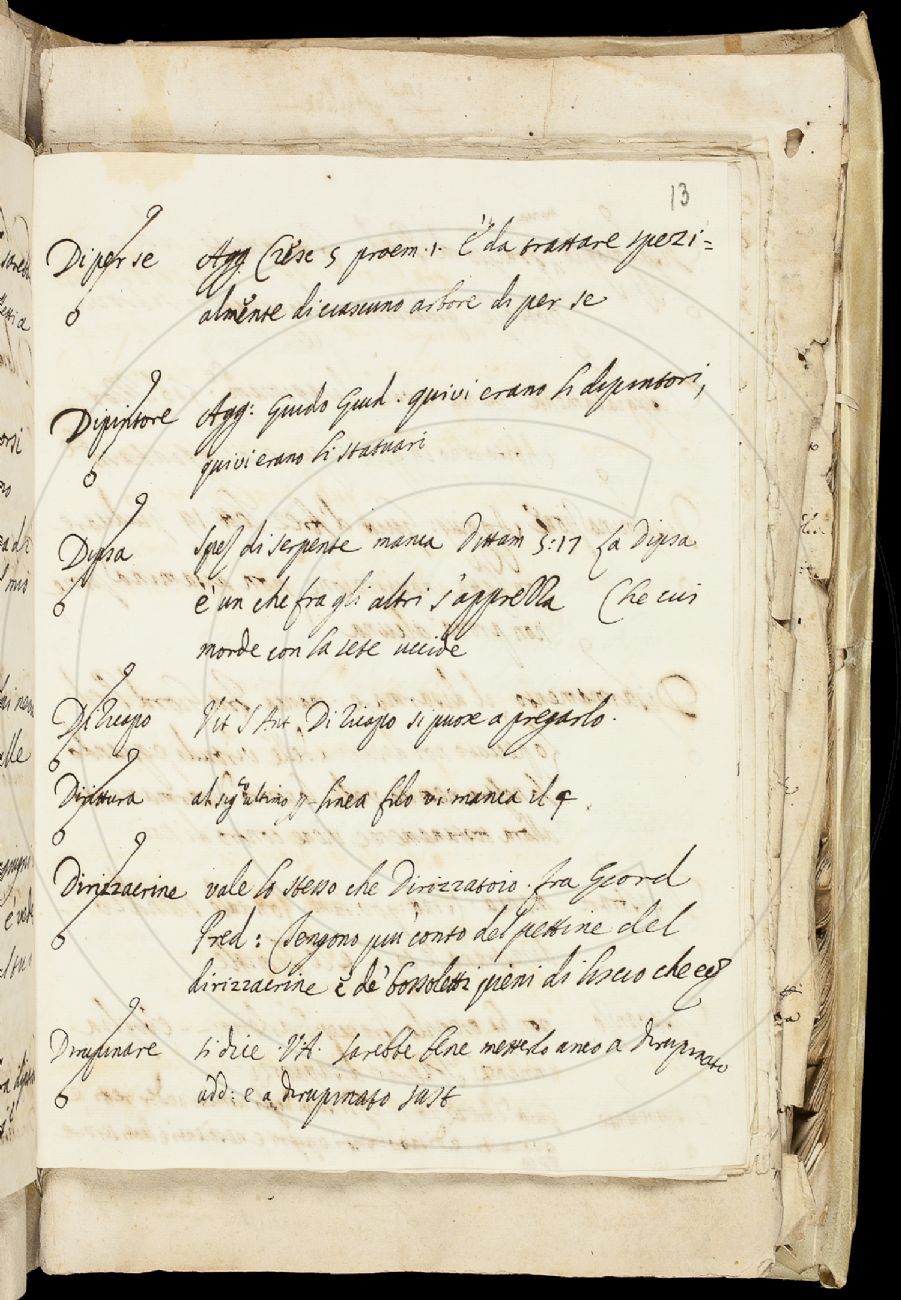 13
Di per se Agg. Cresc 5 proem. 1. È da trattare spezi=
almente di ciascuno arbore di per se
Dipintore Agg: Guido Giud. quivi erano li dipintori,
quivi erano li statuari
Dipsa spez di serpente manca Dittam 5:17 La Dipsa
è un che fra gli altri s'apprella Che cui
morde con la sete uccide
Di ricapo Vit S Ant. Di ricapo si puore a pregarlo.
Dirittura al sig.º ultimo linea filo vi manca il 4
Dirizzacrine vale lo stesso che Dirizzatoio. fra Giord
Pred: Tengono più conto del pettine del
dirizzacrine e de' bossoletti pieni di liscio che
Dirupinare si dice VA. sarebbe bene metterlo anco a dirupinato
add: e a dirupinato sust